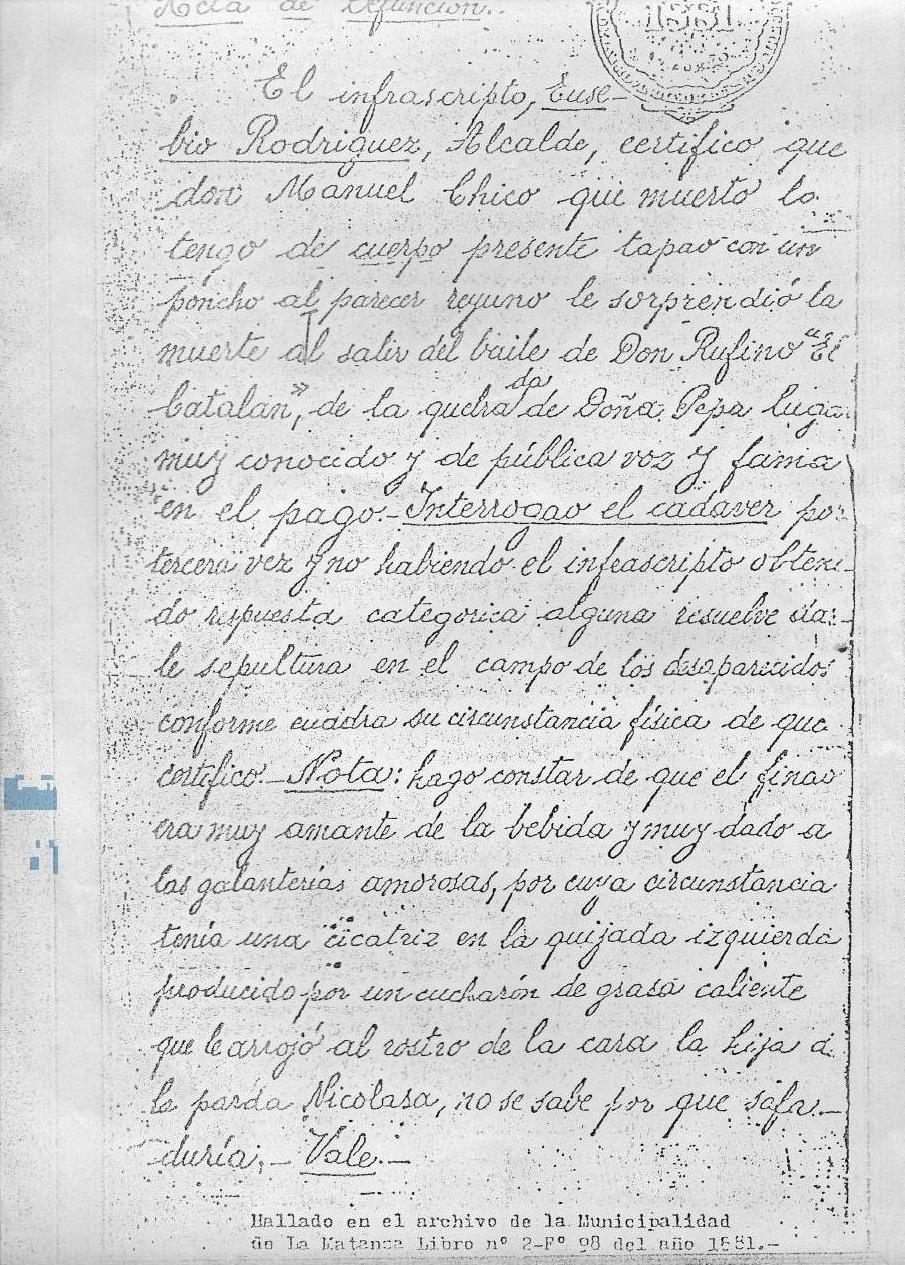 Acta de Defunción.-
1881
El infrascripto, Euse-
bio Rodriguez, Alcalde, certifico que
don Manuel Chico que muerto lo
tengo de cuerpo presente tapao con un
poncho al parecer reyuno le sorprendió la
muerte al salir del baile de Don Rufino "El
Catalan", de la quebrada de Doña Pepa luga
muy conocido y de pública voz y fama
en el pago.- Interrogao el cadaver por
tercera vez y no habiendo el infrascripto obteni-
do respuesta categorica alguna resuelve dar-
le sepultura en el campo de los desaparecidos
conforme cuadra su circunstancia física de que
certifico.- Nota: hago constar de que el finao
era muy amante de la bebida y muy dado a
las galanterías amorosas, por cuya circunstancia
tenía una cicatriz en la quijada izquierda
producido por un cucharón de grasa caliente
que le arrojó al rostro de la cara la hija d
la parda Nicolasa, no se sabe por que safa-
duría.- Vale.-
Hallado en el archivo de la Municipalidad
de La Matanza Libro nº 2-Fº 98 del año 1881.-